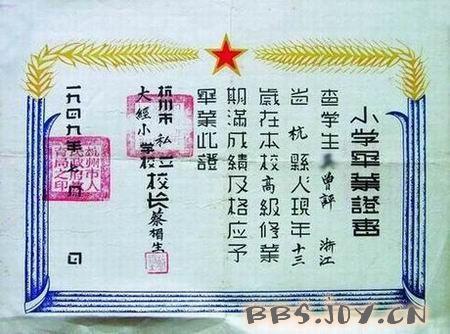 小学畢業證書
查学生 曾評 浙江
省杭縣人現年十三
歲在本校高級修業
期滿成績及格应予
畢業此證
杭州市私立
大經小学校校长蔡相生
一九四九年七月 日
杭州市人
民政府教
育局之印
BBS.JOY.CN